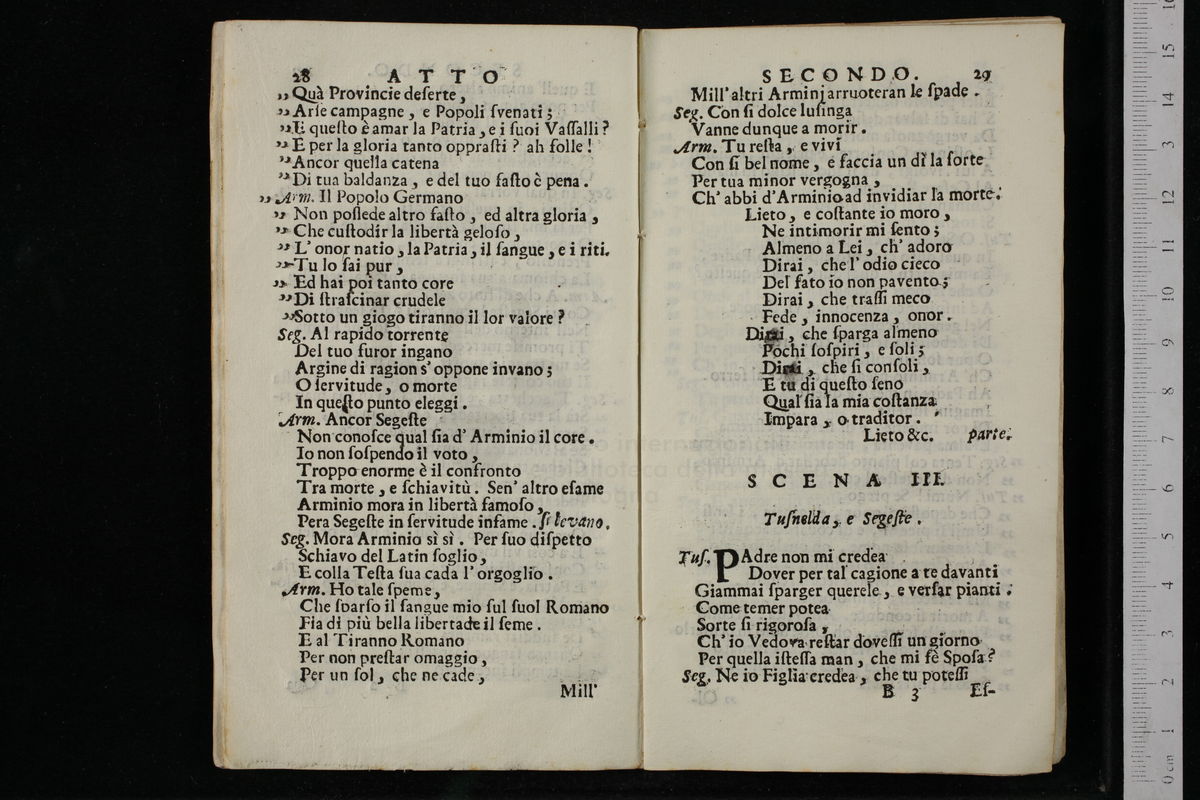 28 ATTO
„ Quà Provincie deserte,
„ Arse campagne, e Popoli svenati;
„ E questo è amar la Patria, e i suoi Vassalli?
„ E per la gloria tanto oprasti? ah folle!
„ Ancor quella catena
„ Di tua baldanza, e del tuo fasto è pena.
„ Arm. Il Popolo Germano
„ Non possede altro fasto, ed altra gloria,
„ Che custodir la libertà geloso,
„ L' onor natio, la Patria, il sangue, e i riti.
„ Tu lo sai pur,
„ Ed hai poi tanto core
„ Di strascinar crudele
„ Sotto un giogo tiranno il lor valore?
Seg. Al rapido torrente
Del tuo furor ingano
Argine di ragion s' oppone invano;
O servitude, o morte
In questo punto eleggi.
Arm. Ancor Segeste
Non conosce qual sia d' Arminio il core.
Io non sospendo il voto,
Troppo enorme è il confronto
Tra morte, e schiavitù. Sen' altro esame
Arminio mora in libertà famoso,
Pera Segeste in servitude infame. si levano.
Seg. Mora Arminio sì sì. Per suo dispetto
Schiavo del Latin soglio,
E colla Testa sua cada l' orgoglio.
Arm. Ho tale speme,
Che sparso il sangue mio sul suol Romano
Fia di più bella libertade il seme.
E al Tiranno Romano
Per non prestar omaggio,
Per un sol, che ne cade,
Mill'
SECONDO. 29
Mill' altri Arminj arruoteran le spade.
Seg. Con si dolce lusinga
Vanne dunque a morir.
Arm. Tu resta, e vivi
Con si bel nome, e faccia un dì la sorte
Per tua minor vergogna,
Ch' abbi d'Arminio ad invidiar la morte.
Lieto, e costante io moro,
Ne intimorir mi sento;
Almeno a Lei, ch' adoro
Dirai, che l' odio cieco
Del fato io non pavento;
Dirai, che trassi meco
Fede, innocenza, onor.
Dirai, che sparga almeno
Pochi sospiri, e soli;
Dirai, che si consoli,
E tu di questo seno
Qual sia la mia costanza
Impara, o traditor.
Lieto &c. parte.
SCENA III.
Tusnelda, e Segeste.
Tus. PAdre non mi credea
Dover per tal cagione a te davanti
Giammai sparger querele, e versar pianti.
Come temer potea
Sorte si rigorosa,
Ch' io Vedova restar dovessi un giorno
Per quella istessa man, che mi fè Sposa?
Seg. Ne io Figlia credea, che tu potessi
B 3 Es-